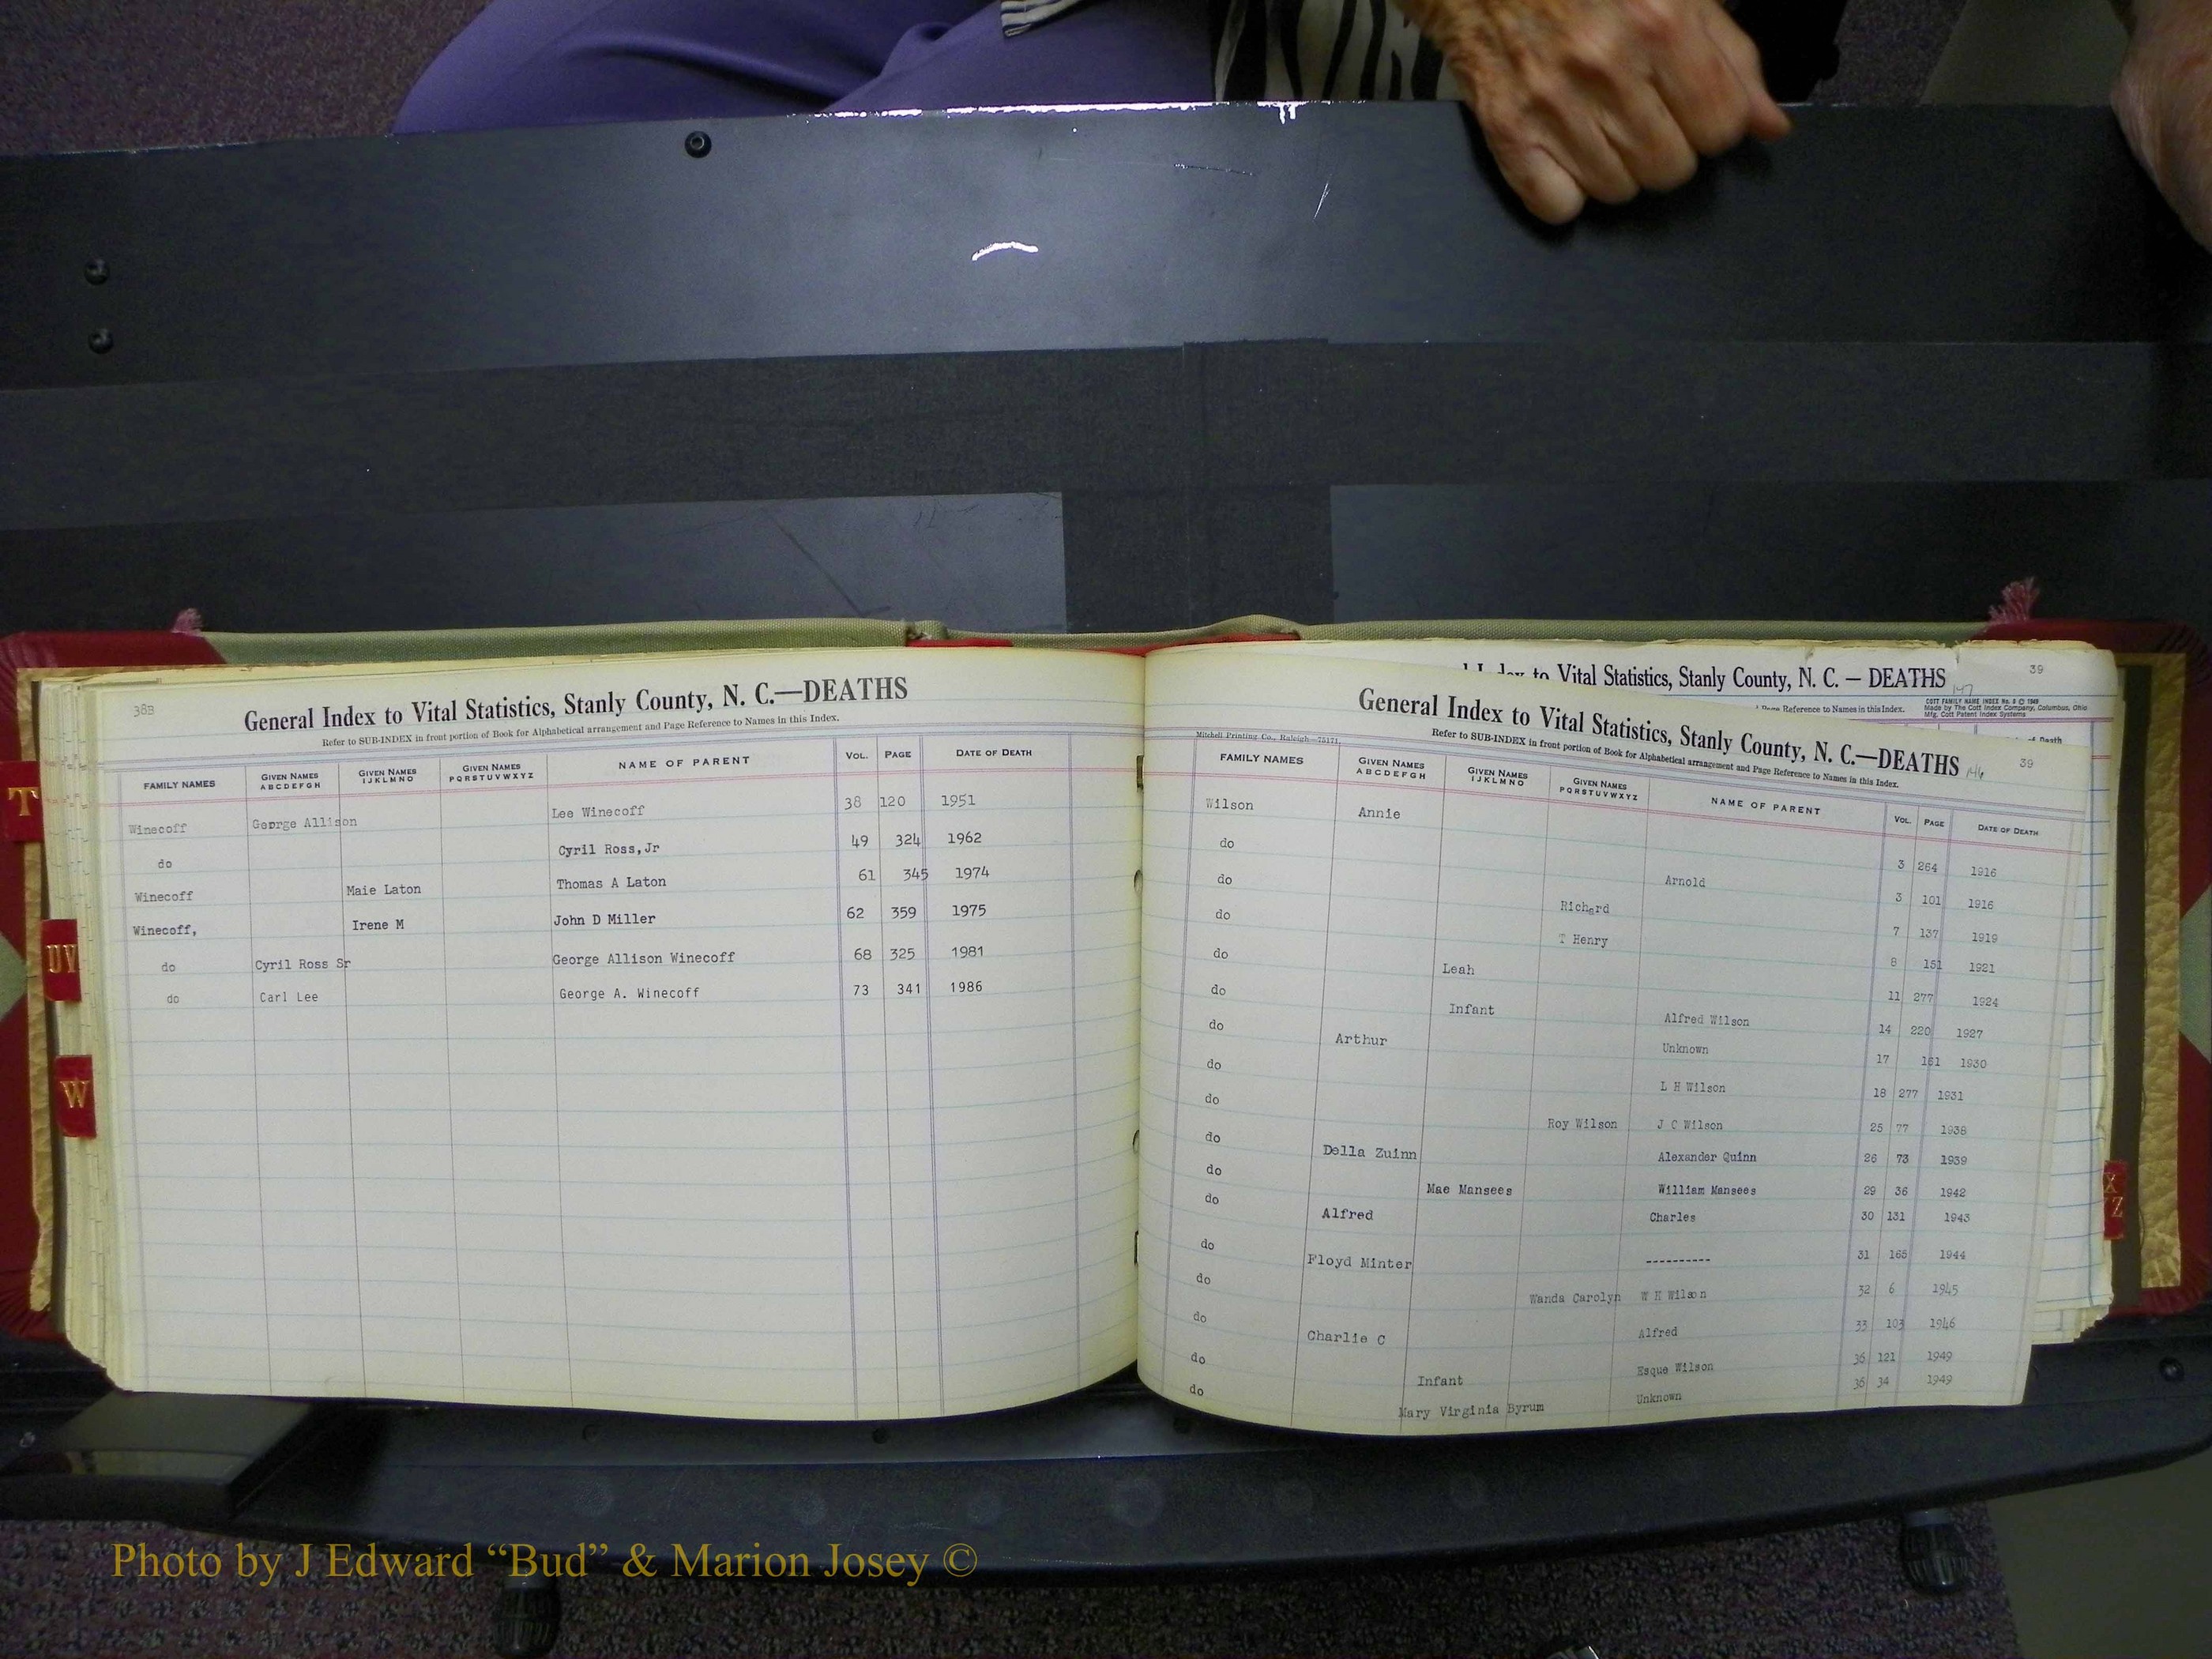 38B
General Index to Vital Statistics, Stanly County, N. C.—DEATHS
Refer to SUB-INDEX in front portion of Book for Alphabetical arrangement and Page Reference to Names in this Index.
FAMILY NAMES GIVEN NAMES ABCDEFGH GIVEN NAMES IJKLMNO GIVEN NAMES PQRSTUVWXYZ NAME OF PARENT VOL. PAGE DATE OF DEATH
Winecoff George Allison Lee Winecoff 38 120 1951
do Cyril Ross,Jr 49 324 1962
Winecoff Maie Laton Thomas A Laton 61 345 1974
Winecoff, Irene M John D Miller 62 359 1975
do Cyril Ross Sr George Allison Winecoff 68 325 1981
do Carl Lee George A. Winecoff 73 341 1986
T
UV
W
to Vital Statistics, Stanly County, N. C. — DEATHS 147 39
Page Reference to Names in this Index.
COTT FAMILY NAME INDEX No. 8 © 1949
Made by The Cott Index Company, Columbus, Ohio
Mfg. Cott Patent Index Systems
of Death
General Index to Vital Statistics, Stanly County, N. C.—DEATHS 146 39
Mitchell Printing Co., Raleigh—75171.
Refer to SUB-INDEX in front portion of Book for Alphabetical arrangement and Page Reference to Names in this Index.
FAMILY NAMES GIVEN NAMES ABCDEFGH GIVEN NAMES IJKLMNO GIVEN NAMES PQRSTUVWXYZ NAME OF PARENT VOL. PAGE DATE OF DEATH
Wilson Annie 3 264 1916
do Arnold 3 101 1916
do Richard 7 137 1919
do T Henry 8 151 1921
do Leah 11 277 1924
do Infant Alfred Wilson 14 220 1927
do Arthur Unknown 17 161 1930
do L H Wilson 18 277 1931
do Roy Wilson J C Wilson 25 77 1938
do Della Zuinn Alexander Quinn 26 73 1939
do Mae Mansees William Mansees 29 36 1942
do Alfred Charles 30 131 1943
do Floyd Minter ---------- 31 165 1944
do Wanda Carolyn W H Wilson 32 6 1945
do Charlie C Alfred 33 103 1946
do Infant Esque Wilson 36 121 1949
do Mary Virginia Byrum Unknown 36 34 1949
X
Z
Photo by J Edward “Bud” & Marion Josey ©